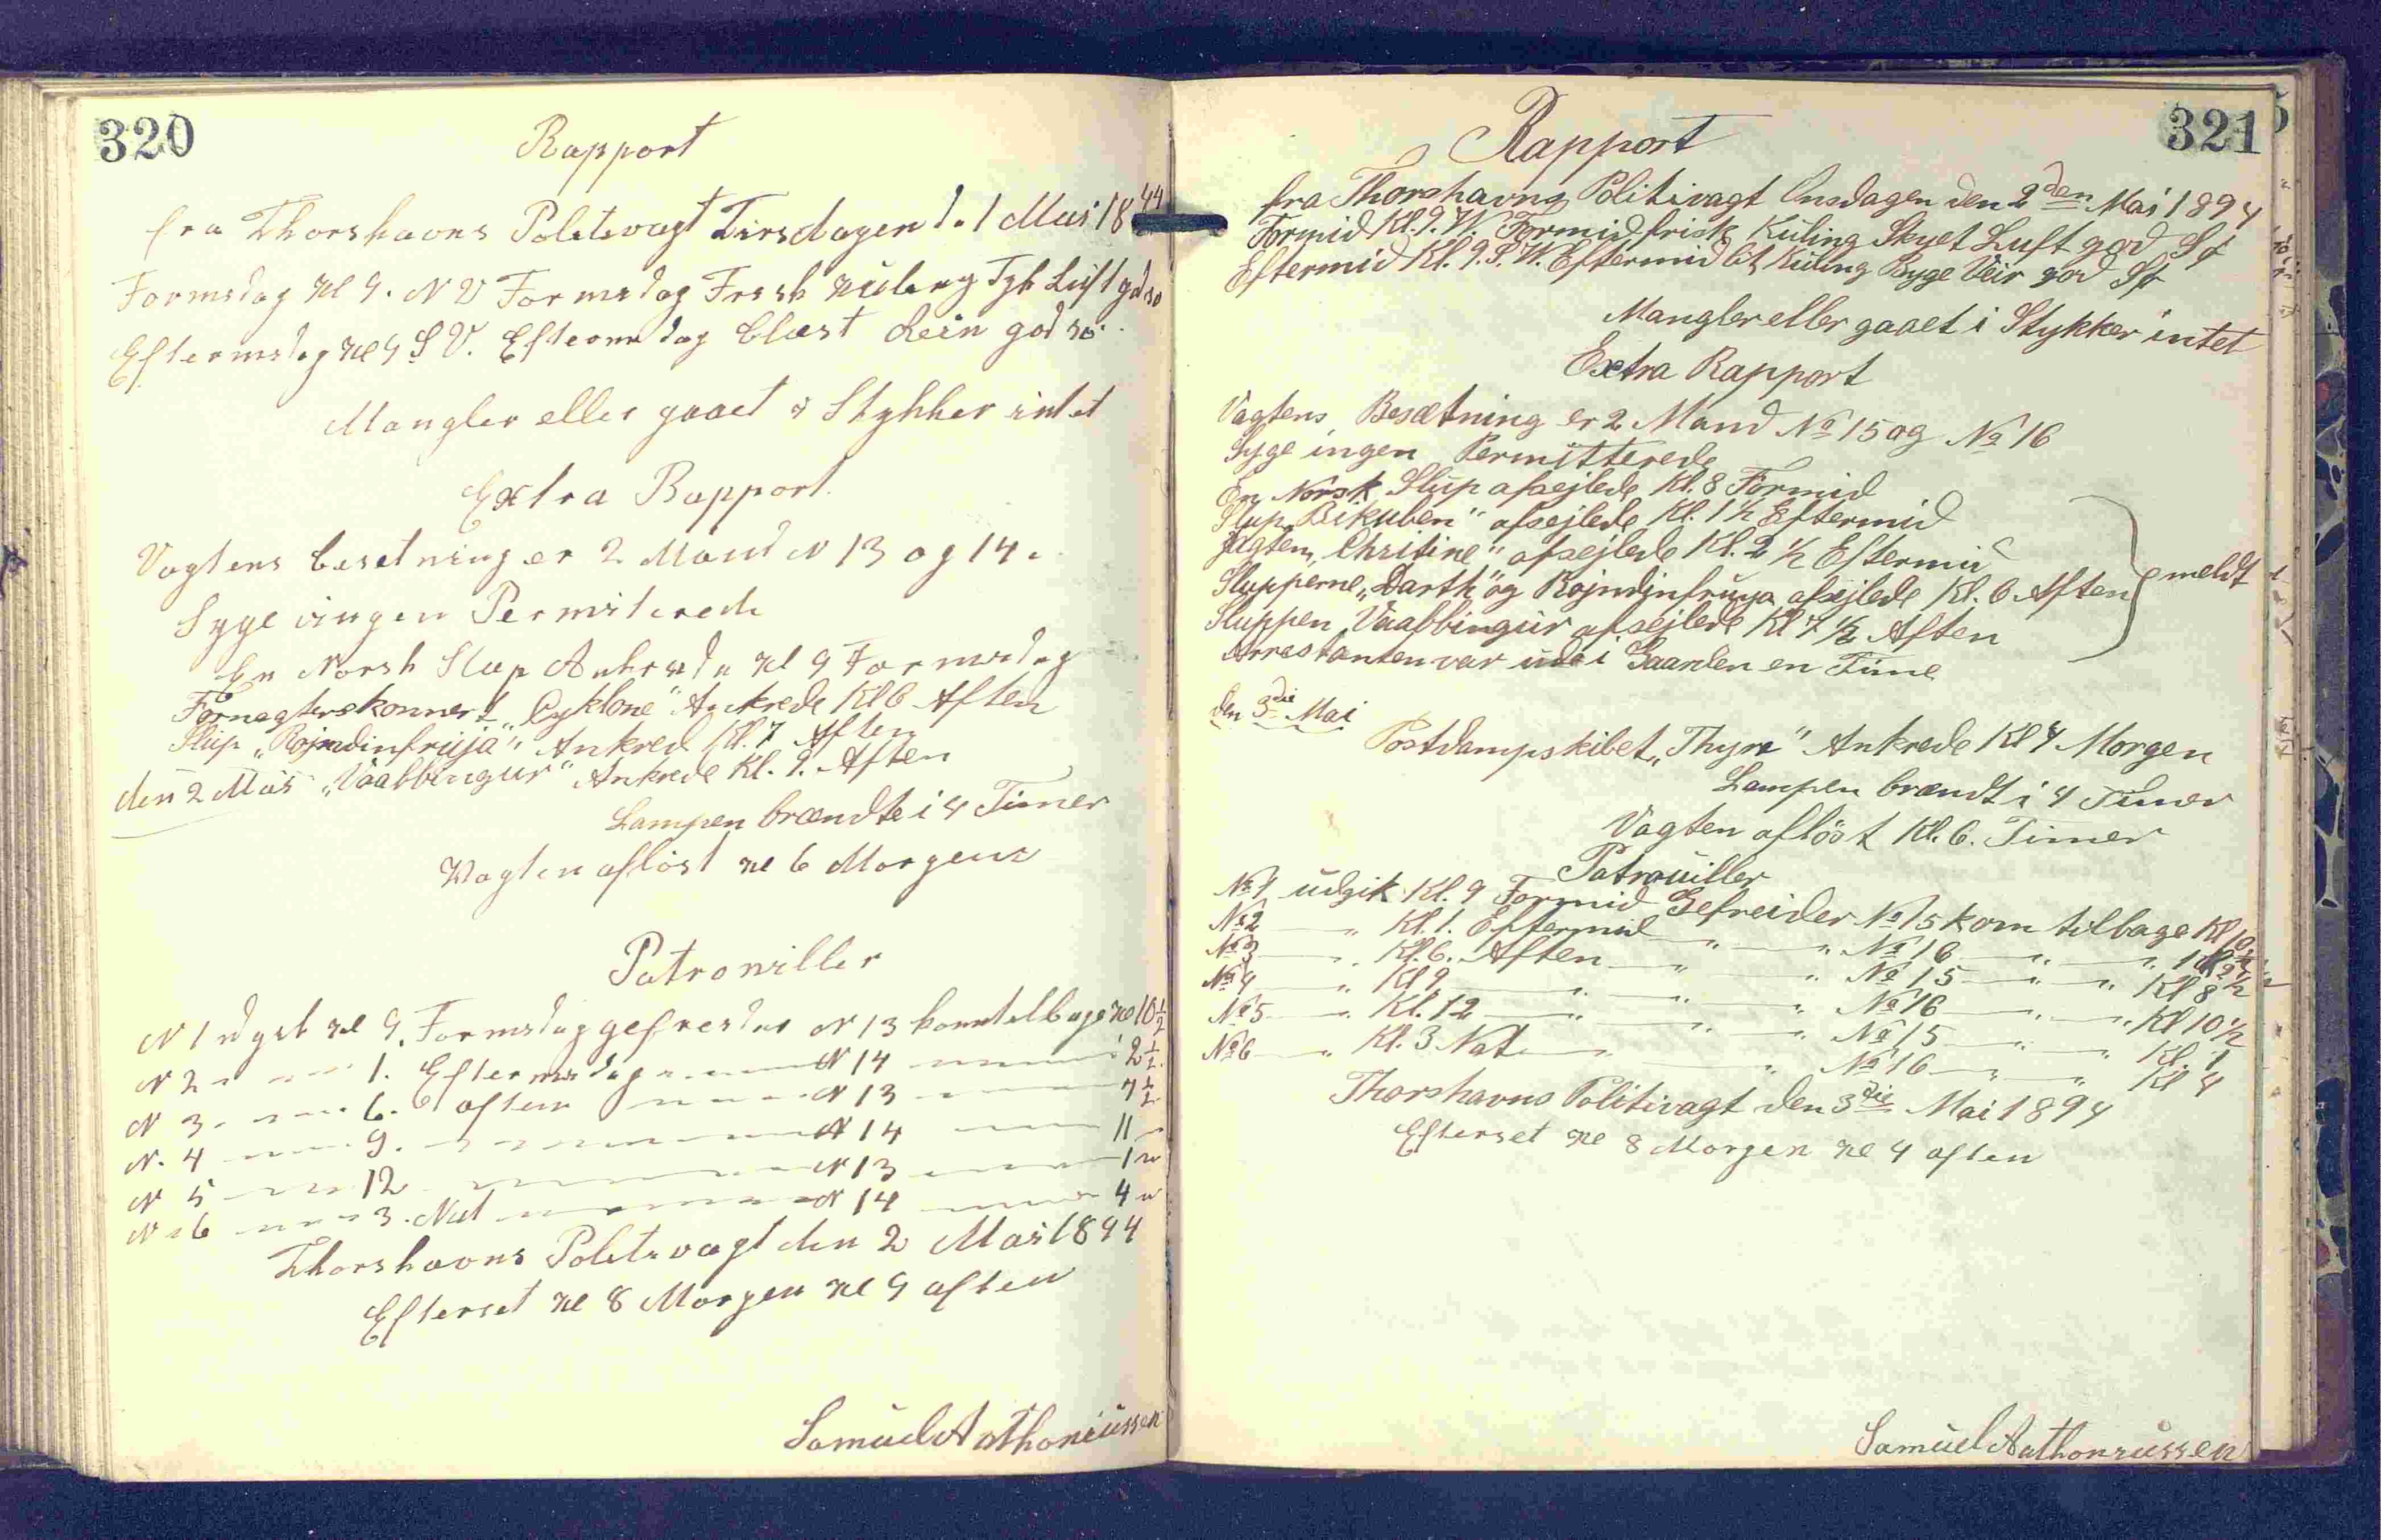 320
Rapport
fra Thorshavns Politivagt Tirsdagen d. 1 Mai 1894
Formidag Kl 9. N V Formidag Frisk Kuling Tyk Luft god so
Eftermidag Kl 9 S V. Eftermidag Blæst Rein god so.
Mangler eller gaaet i Stykker intet
Extra Rapport.
Vagtens besetning er 2 Mand N 13 og 14.
Syge ingen Permiterede
En Norsk Slup Ankrede Kl 9 Formidag
Fornagterskonnert „Cyklone" Ankrede Kl 6 Aften
Slup „Rojndinfruja" Ankred Kl. 7 Aften
den 2 Mai „Vaabbingur" Ankrede Kl. 9. Aften
Lampen brændte i 4 Timer
Vagten afløst Kl 6 Morgens
Patrouiller
N 1 udgik Kl 9. Formidag gefreider N 13 kom tilbage Kl 10 1/2
N 2 " 1. Eftermidag N 14 2 1/2
N 3. 6. aften N 13 7 1/2
N. 4 9. N 14 11 "
N 5 12 N 13 1 "
N 6 3. Nat N 14 4 "
Thorshavns Politivagt den 2 Mai 1894
Efterset Kl 8 Morgen Kl 9 aften
Samuel Anthoniussen
321
Rapport
fra Thorshavns Politivagt Onsdagen den 2den Mai 1894
Formid Kl. 9. W. Formid frisk Kuling Skyet Luft god Sø
Eftermid Kl. 9. S. W. Eftermid lit Kuling Byge Veir god Sø
Mangler eller gaaet i Stykker intet
Extra Rapport
Vagtens Besætning er 2 Mand No 15 og No 16
Syge ingen Permitterede
En Norsk Slup afsejlede Kl. 8 Formid
Slup „Bikuben" afsejlede Kl. 1 1/2 Eftermid
Jagten „Christine" afsejlede Kl. 2 1/2 Eftermid
Slupperne „Darth" og Rojndinfruya afsejlede Kl. 6 Aften
meldt
Sluppen Vaabbingur afsejlede Kl 7 1/2 Aften
Arrestanten var ude i Gaarden en Time
den 3die Mai
Postdampskibet „Thyra" Ankrede Kl 4 Morgen
Lampen brændt i 4 Timer
Vagten afløst Kl. 6. Timer
Patrouiller
No 1 udgik Kl. 9 Formid Gefreider No 15 kom tilbage Kl 10 1/2
No 2 " Kl. 1. Eftermid " " No 16 " "
No 3 " Kl. 6. Aften " " No 15 " " Kl 8
No 4 " Kl 9 " " " No 16 " " Kl 10 1/2
No 5 " Kl. 12 " " " No 15 " " Kl. 1
No 6 " Kl. 3 Nat " No 16 " " Kl 4
Thorshavns Politivagt den 3die Mai 1894
Efterset Kl 8 Morgen Kl 9 aften
Samuel Anthoniussen